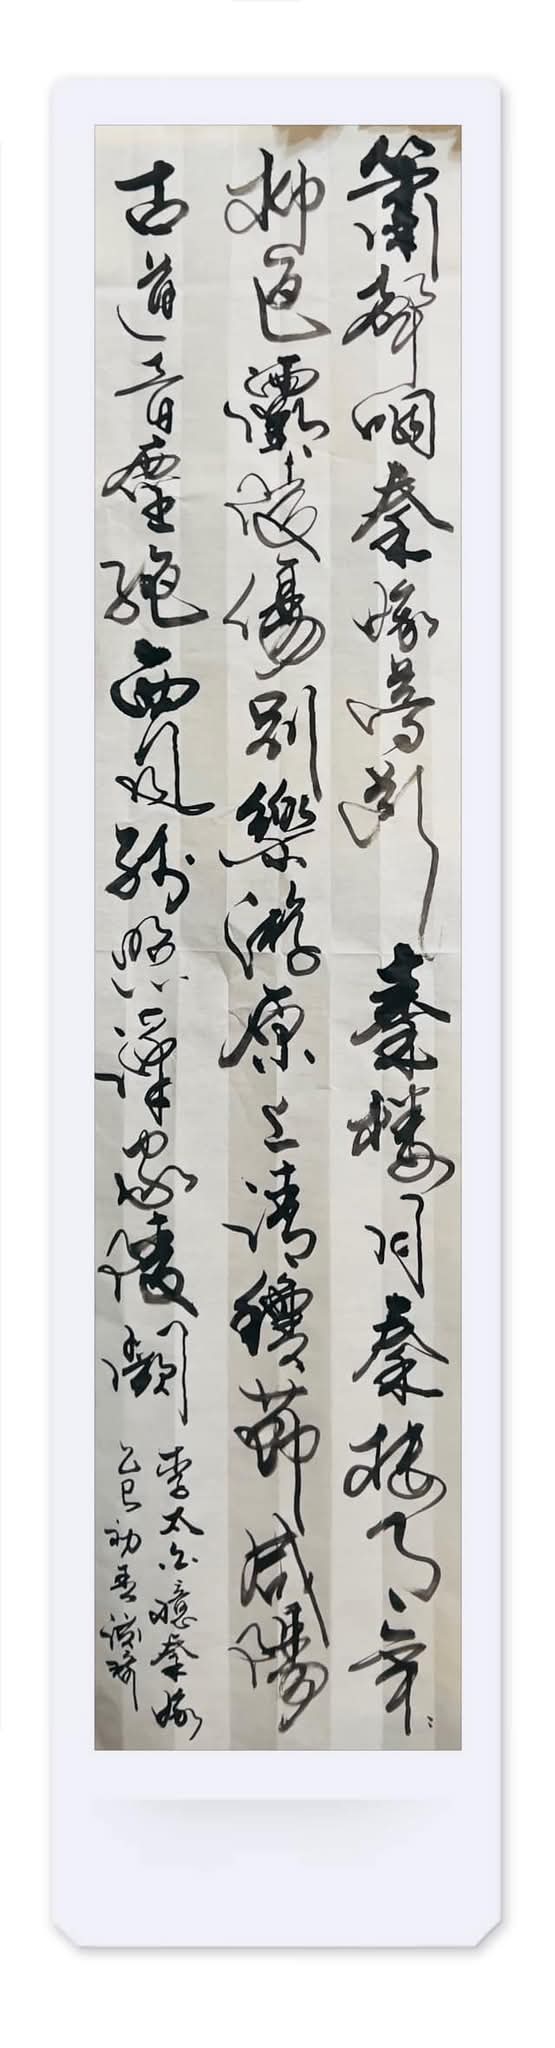 簫聲咽秦娥夢斷秦樓月秦樓月年〻
柳色灞陵傷別樂游原上清穐節咸陽
古道音塵絕西風殘照漢家陵闕
李太白憶秦娥
乙巳初春